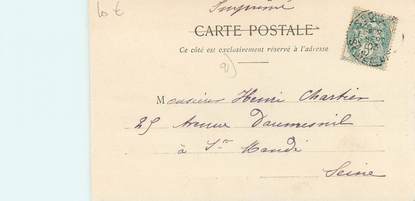 10 €
Imprimé
CARTE POSTALE
Ce côté est exclusivement réservé à l'adresse
Monsieur Henri Chartier
25 Avenue Daumesnil
à St Mandé
Seine